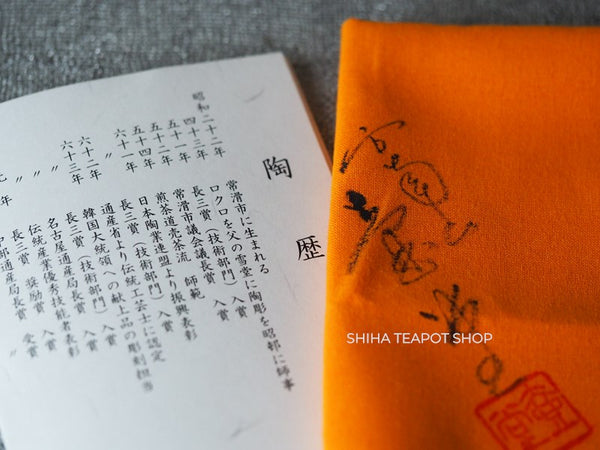 陶歴
昭和二十二年 常滑市に生まれる
四十三年 ロクロを父の雪堂に陶彫を昭邨に師事
長三賞(技術部門) 入賞
常滑市議会議長賞 入賞
煎茶道売茶流 師範
日本陶業連盟より振興表彰
六十一年 長三賞(技術部門) 入賞
〃 通産省より伝統工芸士に認定
六十二年 韓国大統領への献上品の彫刻担当
六十三年 長三賞(技術部門) 入賞
〃 名古屋通産局長表彰
〃 伝統産業優秀技能者表彰
長三賞 奨励賞 入賞
通産局長賞 受賞
SHIHA TEAPOT SHOP